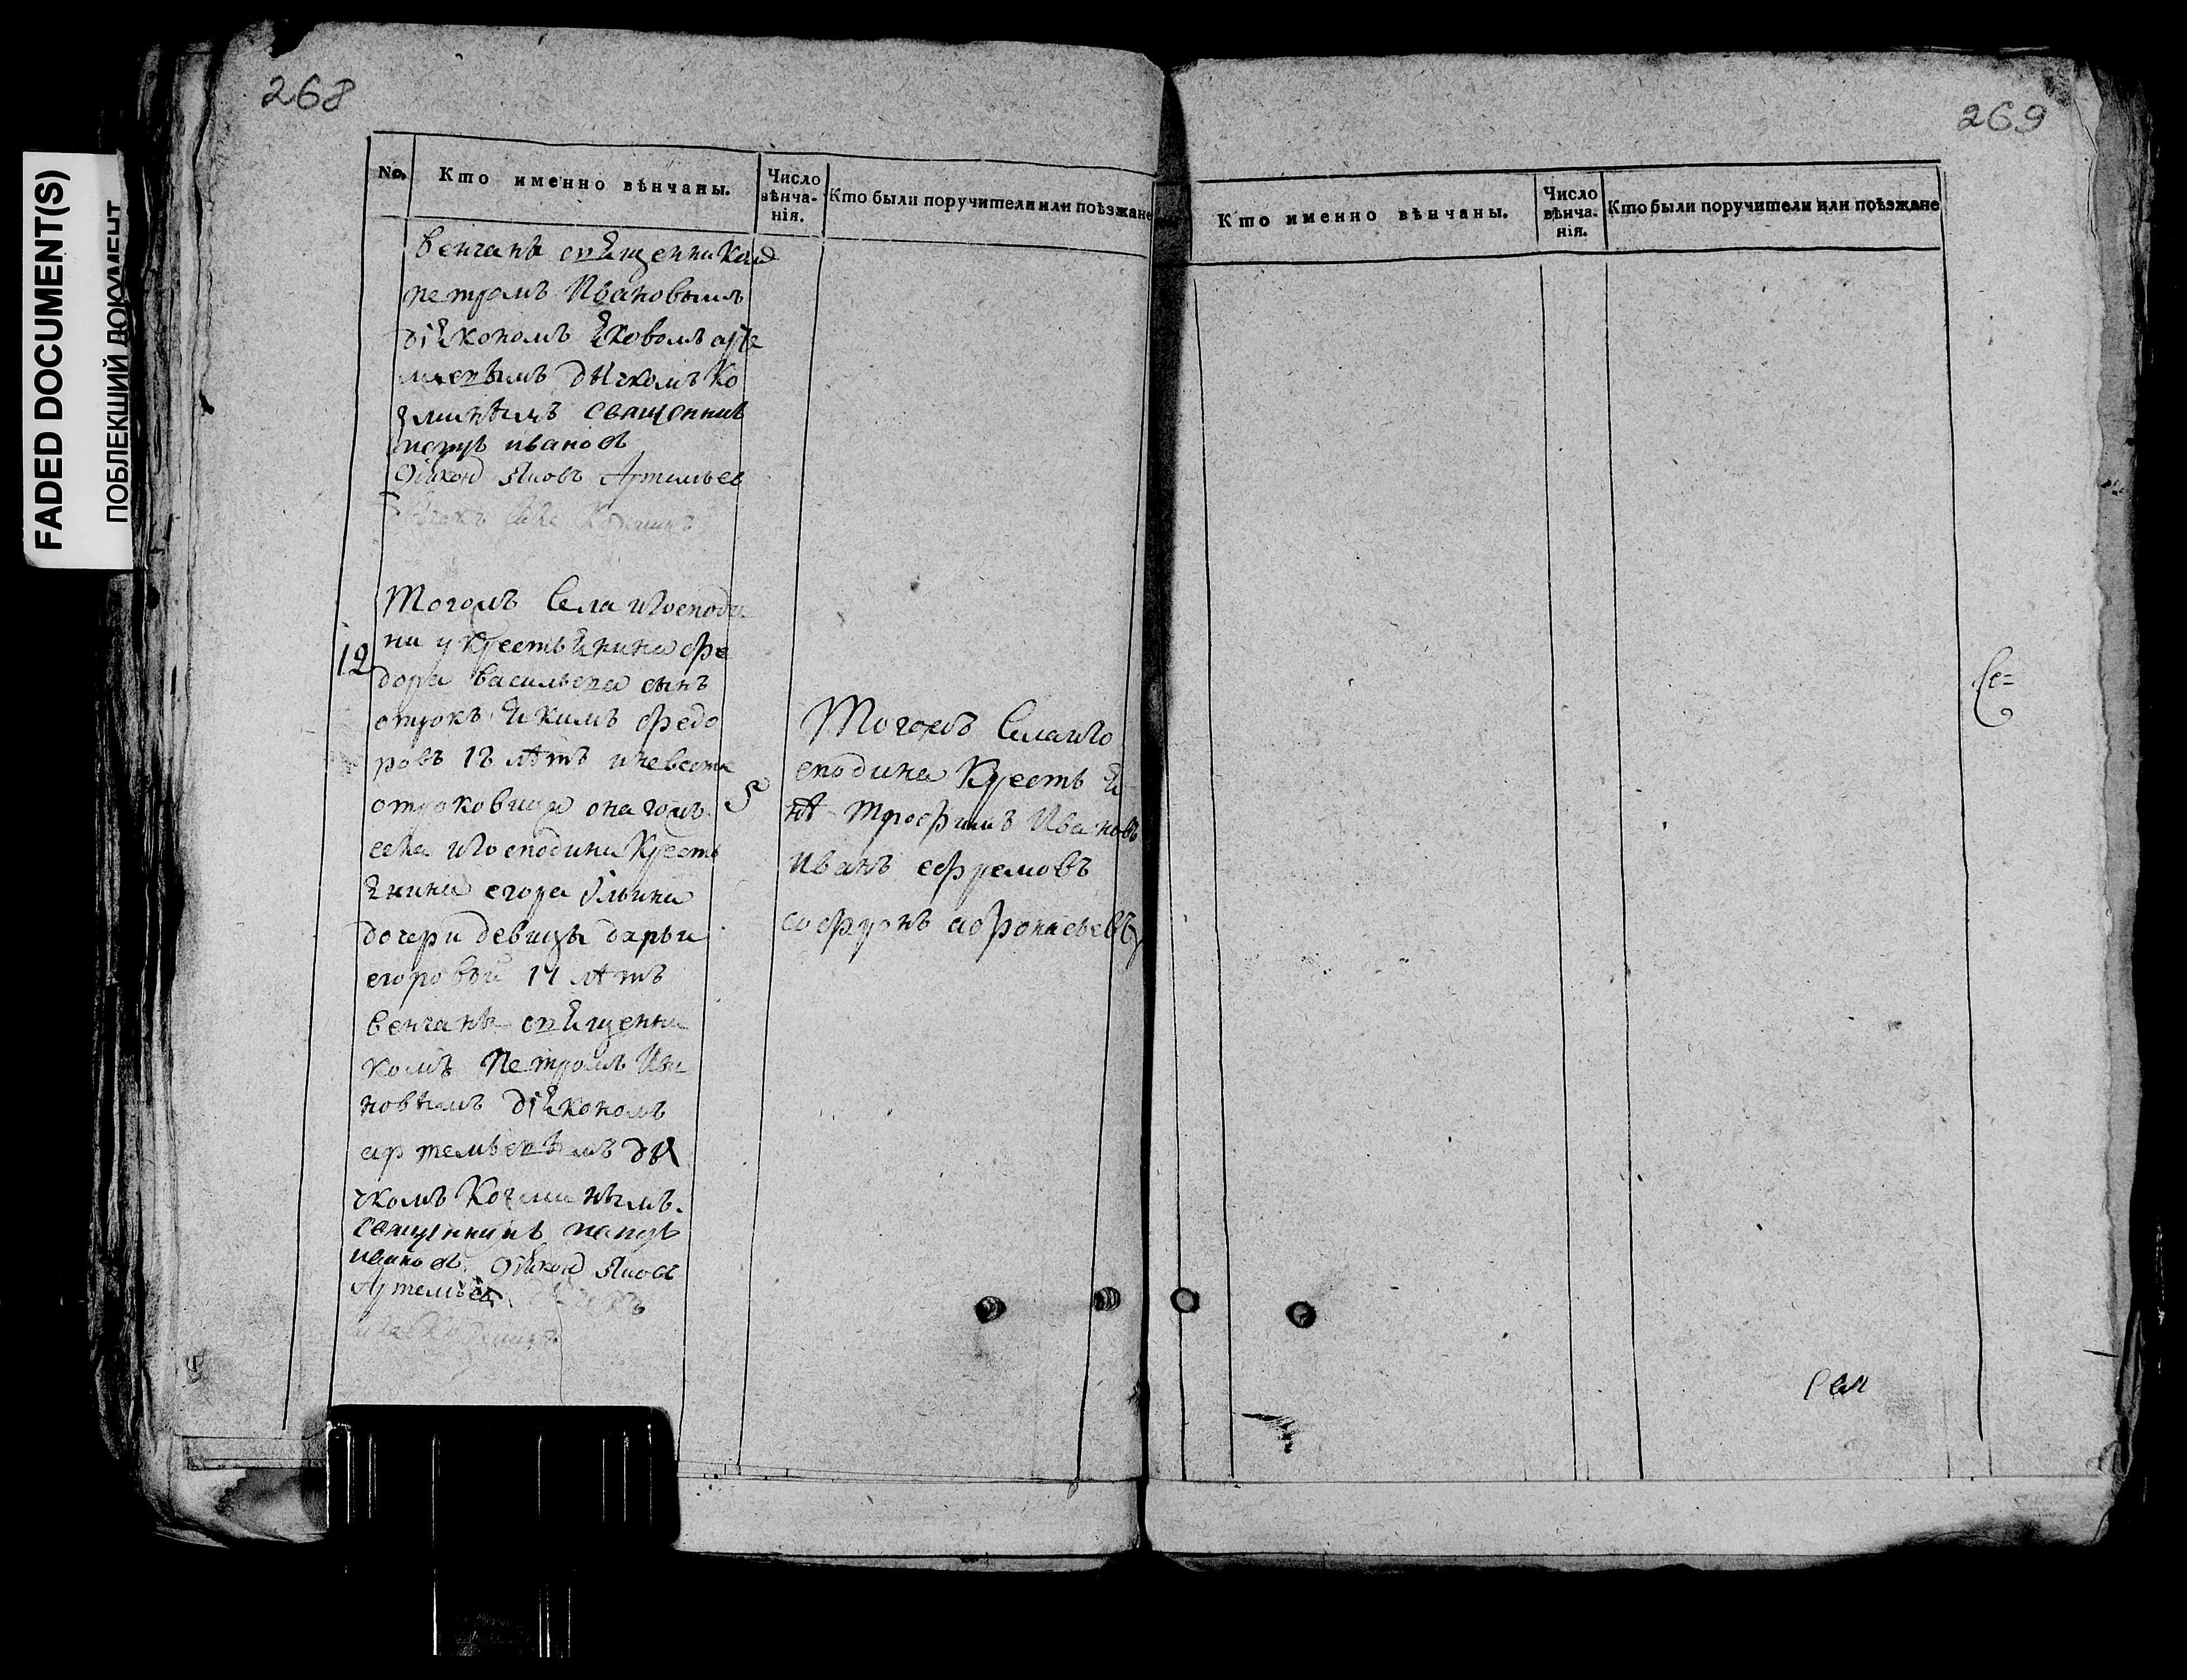 268
269
FADED DOCUMENT(S)
ПОБЛЕКЩИЙ ДОКУМЕНТ
No.
Кто именно вѣнчаны.
Число вѣнча-
нія.
Кто были поручители или поѣзжане
венчаны священником
петромъ Ивановымъ
діякономъ Яковомъ арте
мьевымъ дьячкомъ Ко
зминымъ священникъ
петръ иванов
Діякон Яковъ Артемьев
Козминъ
12
Тогожъ Села и Господи
ни у крестьянина фе
дора васильева сынъ
отрокъ Якимъ федо
ровъ 18 лѣтъ и невеста
отроковица онагожъ
села и Господина Кресть
янина егора Ильина
дочери девицы дарьи
егоровой 17 лѣтъ
венчаны священни
комъ Петромъ Ива
новымъ діякономъ
артемьевымъ дья
чкомъ Козминымъ.
священникъ петръ
иванов. Діякон Яковъ
Артемьев
Козминъ
5
Тогожъ Села и Го
сподина Кресть я
нѣ трофимъ Ивановъ
Иванъ ефремовъ
софронъ афонасьевъ
Кто именно вѣнчаны.
Число
вѣнча-
нія.
Кто были поручители или поѣзжане
Се=